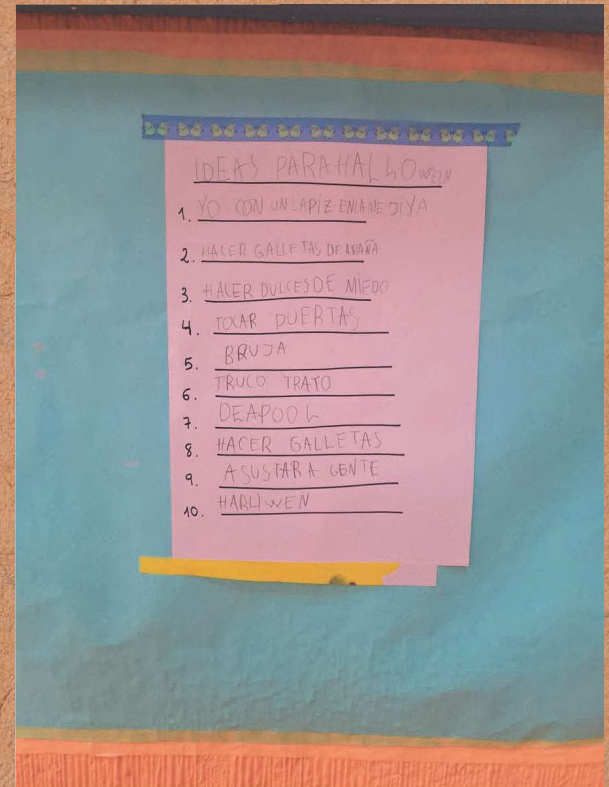 IDEAS PARA HALLOWEIN
1. YO CON UN LAPIZ EN LA MEJIYA
2. HACER GALLETAS DE ARAÑA
3. HACER DULCES DE MIEDO
4. TOCAR PUERTAS
5. BRUJA
6. TRUCO TRATO
7. DEAPOOL
8. HACER GALLETAS
9. ASUSTAR A GENTE
10. HARLIWEN